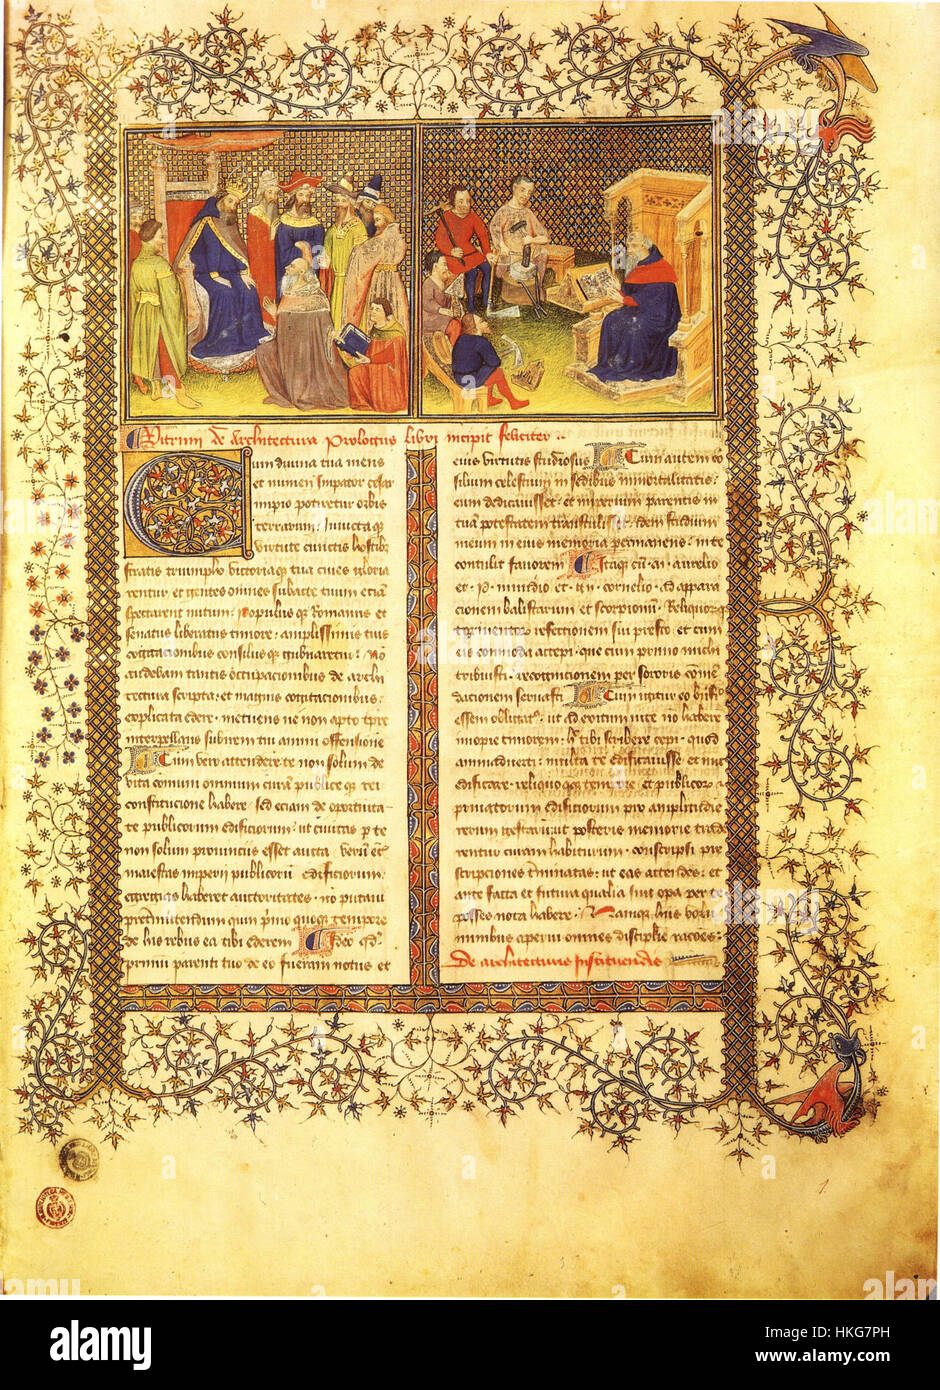 Vitruuii de Architectura Prologus libri incipit feliciter
Cum diuina tua mens
et numen Imperator cesar
imperio potiretur orbis
terrarum Inuictaq
virtute cunctis hostib
stratis triumpho victoriaq tua ciues gloria
rentur et gentes omnes subacte tuum
spectarent nutum populus q Romanus et
senatus liberatus timore amplissimis tuis
cogitacionibus consilijs q gubnaretur No
audebam tantis occupacionibus de archi
tectura scripta et magnis cogitacionibus
explicata edere metuens ne non apto tpre
interpellans subirem tui animi offensione
Cum vero attenderem te non solum de
vita communi omnium cura publice q rei
constitucione habere sed eciam de oportunita
te publicorum edificiorum ut ciuitas p te
non solum prouincijs esset aucta verum et
maiestas imperij publicorum edificiorum
egregias haberet auctoritates no putaui
pretermittendum quin primo quoq tempore
de his rebus ea tibi ederem Ideo qd
primum parenti tuo de eo fueram notus et
eius virtutis studiosus Cum autem co
silium celestium in sedibus inmortalitatis
eum dedicauisset et imperium parentis in
tuam potestatem transtulisset idem studium
meum in eius memoria permanens in te
contulit fauorem Itaq cum aurelio
et p minidio et gn cornelio ad appara
cionem balistarum et scorpionum Reliquorum q
tormentorum refectionem fui presto et cum
eis commoda accepi que cum primo michi
tribuisti recognicionem per sororis com
dacionem seruasti Cum igitur eo bnficio
essem obligatus ut ad exitum uite no haberem
inopie timorem hec tibi scribere cepi quod
animaduerti multa te edificauisse et nuc
edificare reliquo quoq tempore et publicorum et
priuatorum edificiorum pro amplitudine
rerum gestarum ut posteris memorie trade
rentur curam habiturum conscripsi pre
scripciones terminatas ut eas attendens et
ante facta et futura qualia sint opera per te
posses nota habere Namq his volu
minibus aperui omnes discipline raciones
De architectis instituendis
1
alamy
Image ID: HKG7PH
www.alamy.com